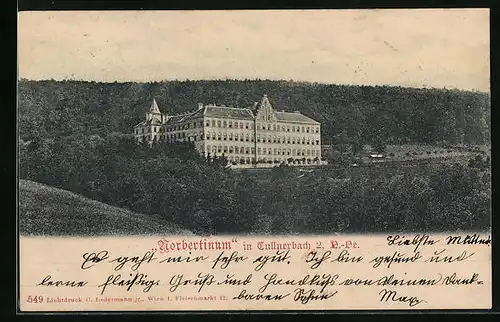 „Norbertinum" in Tullnerbach 2, N.-Oe.
Liebste Mutter
Es geht mir sehr gut. Ich bin gesund und
lerne fleißig. Gruß und Handkuß von Deinem dank-
baren Sohne Max
549 Lichtdruck C. Ledermann jr., Wien I, Fleischmarkt 12.